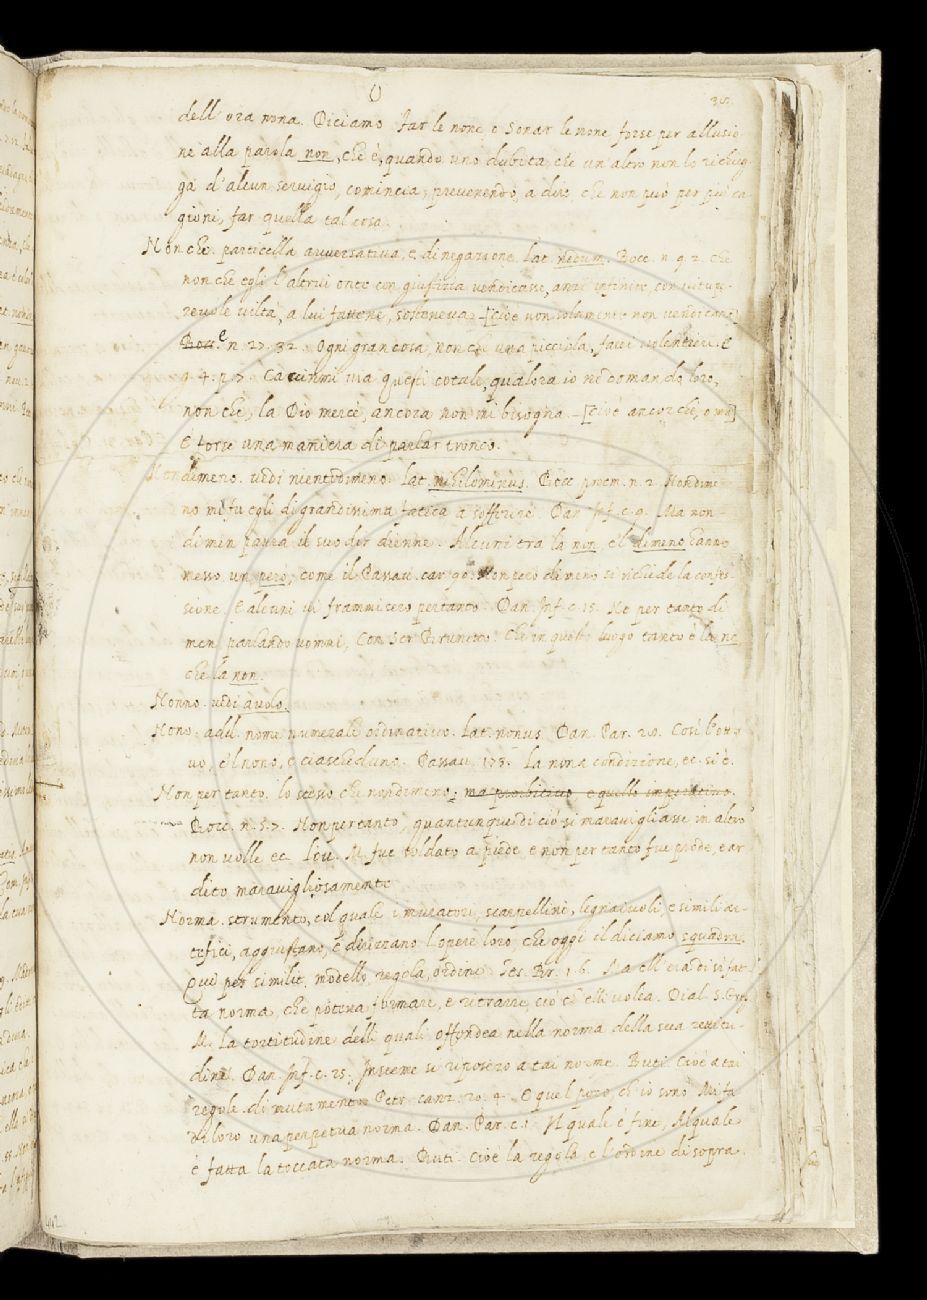 O
dell'ora nona. Diciamo far le none, e Sonar le none forse per allusio-
ne alla parola non, che è, quando uno dubita, che un altro non lo richieg-
ga d'alcun seruigio, comincia, preuenendo, a dir, che non può per più ca
gioni, far quella tal cosa.
Non che. particella auuersatiua, e di negazione. lat. nedum. Bocc. n. 9. 2. che
non che egli l'altrui onte con giustizia vendicasse, anzi infinite, con vitupe-
reuole viltà, a lui fattene, sosteneua -[cioè non solamente non vendicaua]
Bocc. e n. 27. 32. Ogni gran cosa, non che una picciola, farei volentieri. E
g. 4. p. 7. Cacinmi via questi cotali, qualora io ne domando loro,
non che, la Dio mercè, ancora non mi bisogna -[cioè ancorchè, o ma]
È forse una maniera di parlar tronco.
Nondimeno. vedi nientedimeno. lat. nihilominus. Bocc. proem. n. 2. Nondime
no mi fu egli di grandissima fatica a sofferire. Dan. Inf. c. 9. Ma non-
dimen paura il suo dir dienne. Alcuni tra la non, e'l dimeno hanno
messo un però, come il Passau. car. 90. Non però dimeno si richiede la confes-
sione. E alcuni vi frammisero pertanto. Dan. Inf. c. 15. Ne per tanto di
men parlando vommi, Con Ser Brunetto. Che in quel luogo tanto è la ne
che la non.
Nonno. vedi auolo.
Nono. add. nome numerale ordinatiuo. lat. nonus. Dan. Par. 28. Così l'otta
uo, e'l nono, e ciascheduno. Passau. 173. La nona condizione, ec. si è.
Non per tanto. lo stesso che nondimeno; ma proibitiuo, e quello imperatiuo.
Bocc. n. 57. Non per tanto, quantunque di ciò si marauigliasse in altro
non volle ec. Liu. M. fue soldato a piede e non per tanto fue prode, e ar
dito marauigliosamente
Norma. strumento, col quale i muratori, scarpellini, legnaiuoli, e simili ar-
tefici, aggiustano, e dirizzano l'opere loro, che oggi il diciamo squadra.
Qui per similit. modello, regola, ordine. Tes. Br. 1. 6. Ma ell'era di sì fat-
ta norma, che poteua formare, e ritrarre, ciò ch'elli volea. Dial. S. Greg.
M. La tortitudine delli quali offendea nella norma della sua rettitu-
dine. Dan. Inf. c. 25. Insieme si risposero a tai norme. Buti. Cioè a tai
regole di mutamento Petr. canz. 20. 4. E quel poco, ch'io sono Mi fa
di loro una perpetua norma. Dan. Par. c. 1. Il quale è fine, Al quale
è fatta la toccata norma. Buti. Cioè la regola, e l'ordine di sopra.